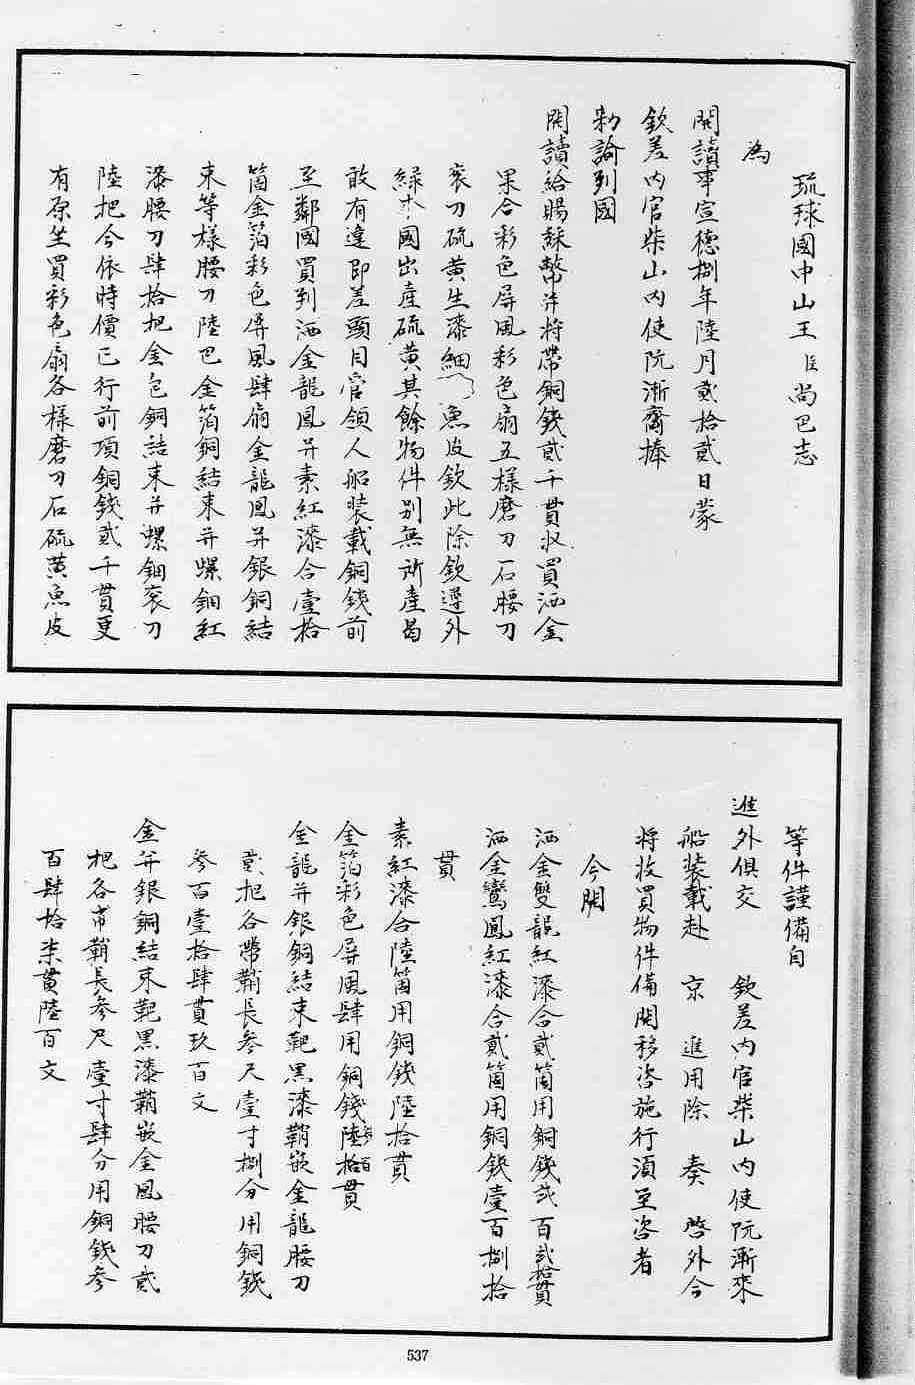 琉球國中山王臣尚巴志
為
開讀事宣德捌年陸月貳拾貳日蒙
欽差內官柴山內使阮漸齎捧
勅諭到國
開讀給賜綵幣并將帶銅錢貳千貫收買洒金
果合彩色屏風彩色扇五樣磨刀石腰刀
衮刀硫黃生漆細魚皮欽此除欽遵外
緣本國出產硫黃其餘物件別無所產曷
敢有違即差頭目官領人船裝載銅錢前
至鄰國買到洒金龍鳳并素紅漆合壹拾
箇金箔彩色屏風肆扇金龍鳳并銀銅結
束等樣腰刀陸巴金箔銅結束并螺鈿紅
漆腰刀肆拾把金包銅結束并螺鈿衮刀
陸把今依時價已行前項銅錢貳千貫更
有原坐買彩色扇各樣磨刀石硫黃魚皮
等件謹備自
進外俱交 欽差內官柴山內使阮漸來
船裝載赴 京 進用除 奏 啓外今
將收買物件備開移咨施行須至咨者
今開
洒金雙龍紅漆合貳箇用銅錢貳百貳拾貫
洒金鸞鳳紅漆合貳箇用銅錢壹百捌拾
貫
素紅漆合陸箇用銅錢陸拾貫
金箔彩色屏風肆用銅錢陸拾貫
金龍并銀銅結束靶黑漆鞘嵌金龍腰刀
貳把各帶鞘長參尺壹寸捌分用銅錢
參百壹拾肆貫玖百文
金并銀銅結束靶黑漆鞘嵌金鳳腰刀貳
把各帶鞘長參尺壹寸肆分用銅錢參
百肆拾柒貫陸百文
537